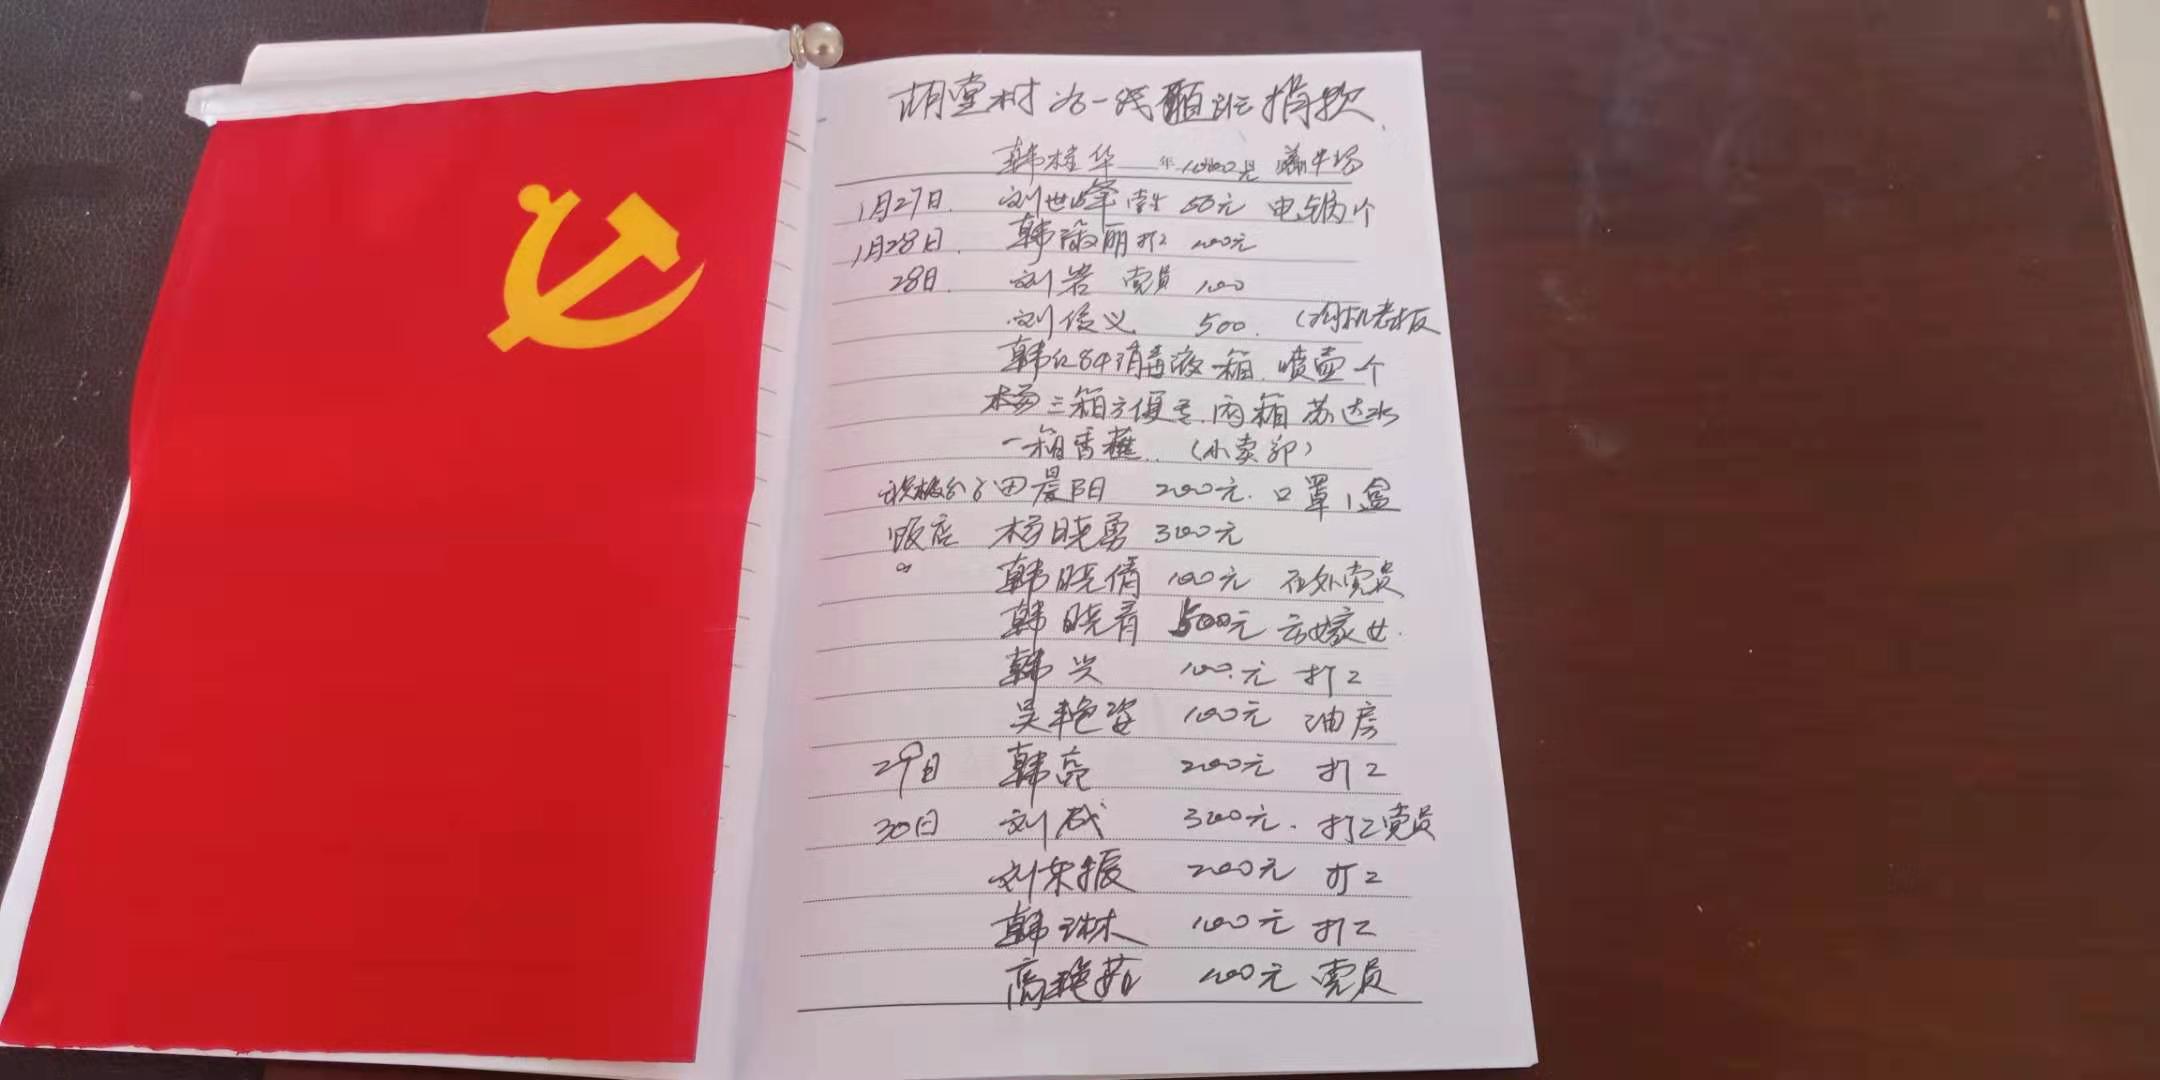 胡堂村为一线值班捐款
韩桂华 1000元 养牛场
1月27日. 刘世峰 50元 电锅1个
1月28日. 韩淑丽 打工 200元
28日. 刘岩 党员 100
刘俊义 500. (司机老板
韩仁84消毒液一箱. 喷壶一个
杨三箱方便面.两箱苏达水
一箱香蕉..(小卖部)
田晨阳 200元. 口罩1盒
饭店 杨晓勇 300元
韩晓倩 100元 在外党员
韩晓青 500元 云嫁女.
韩兴 100.元 打工
吴艳姿 100元 油房
29日 韩亮 200元 打工
30日 刘成 300元. 打工党员
刘荣振 200元 打工
韩琳 100元 打工
高艳茹 200元 党员